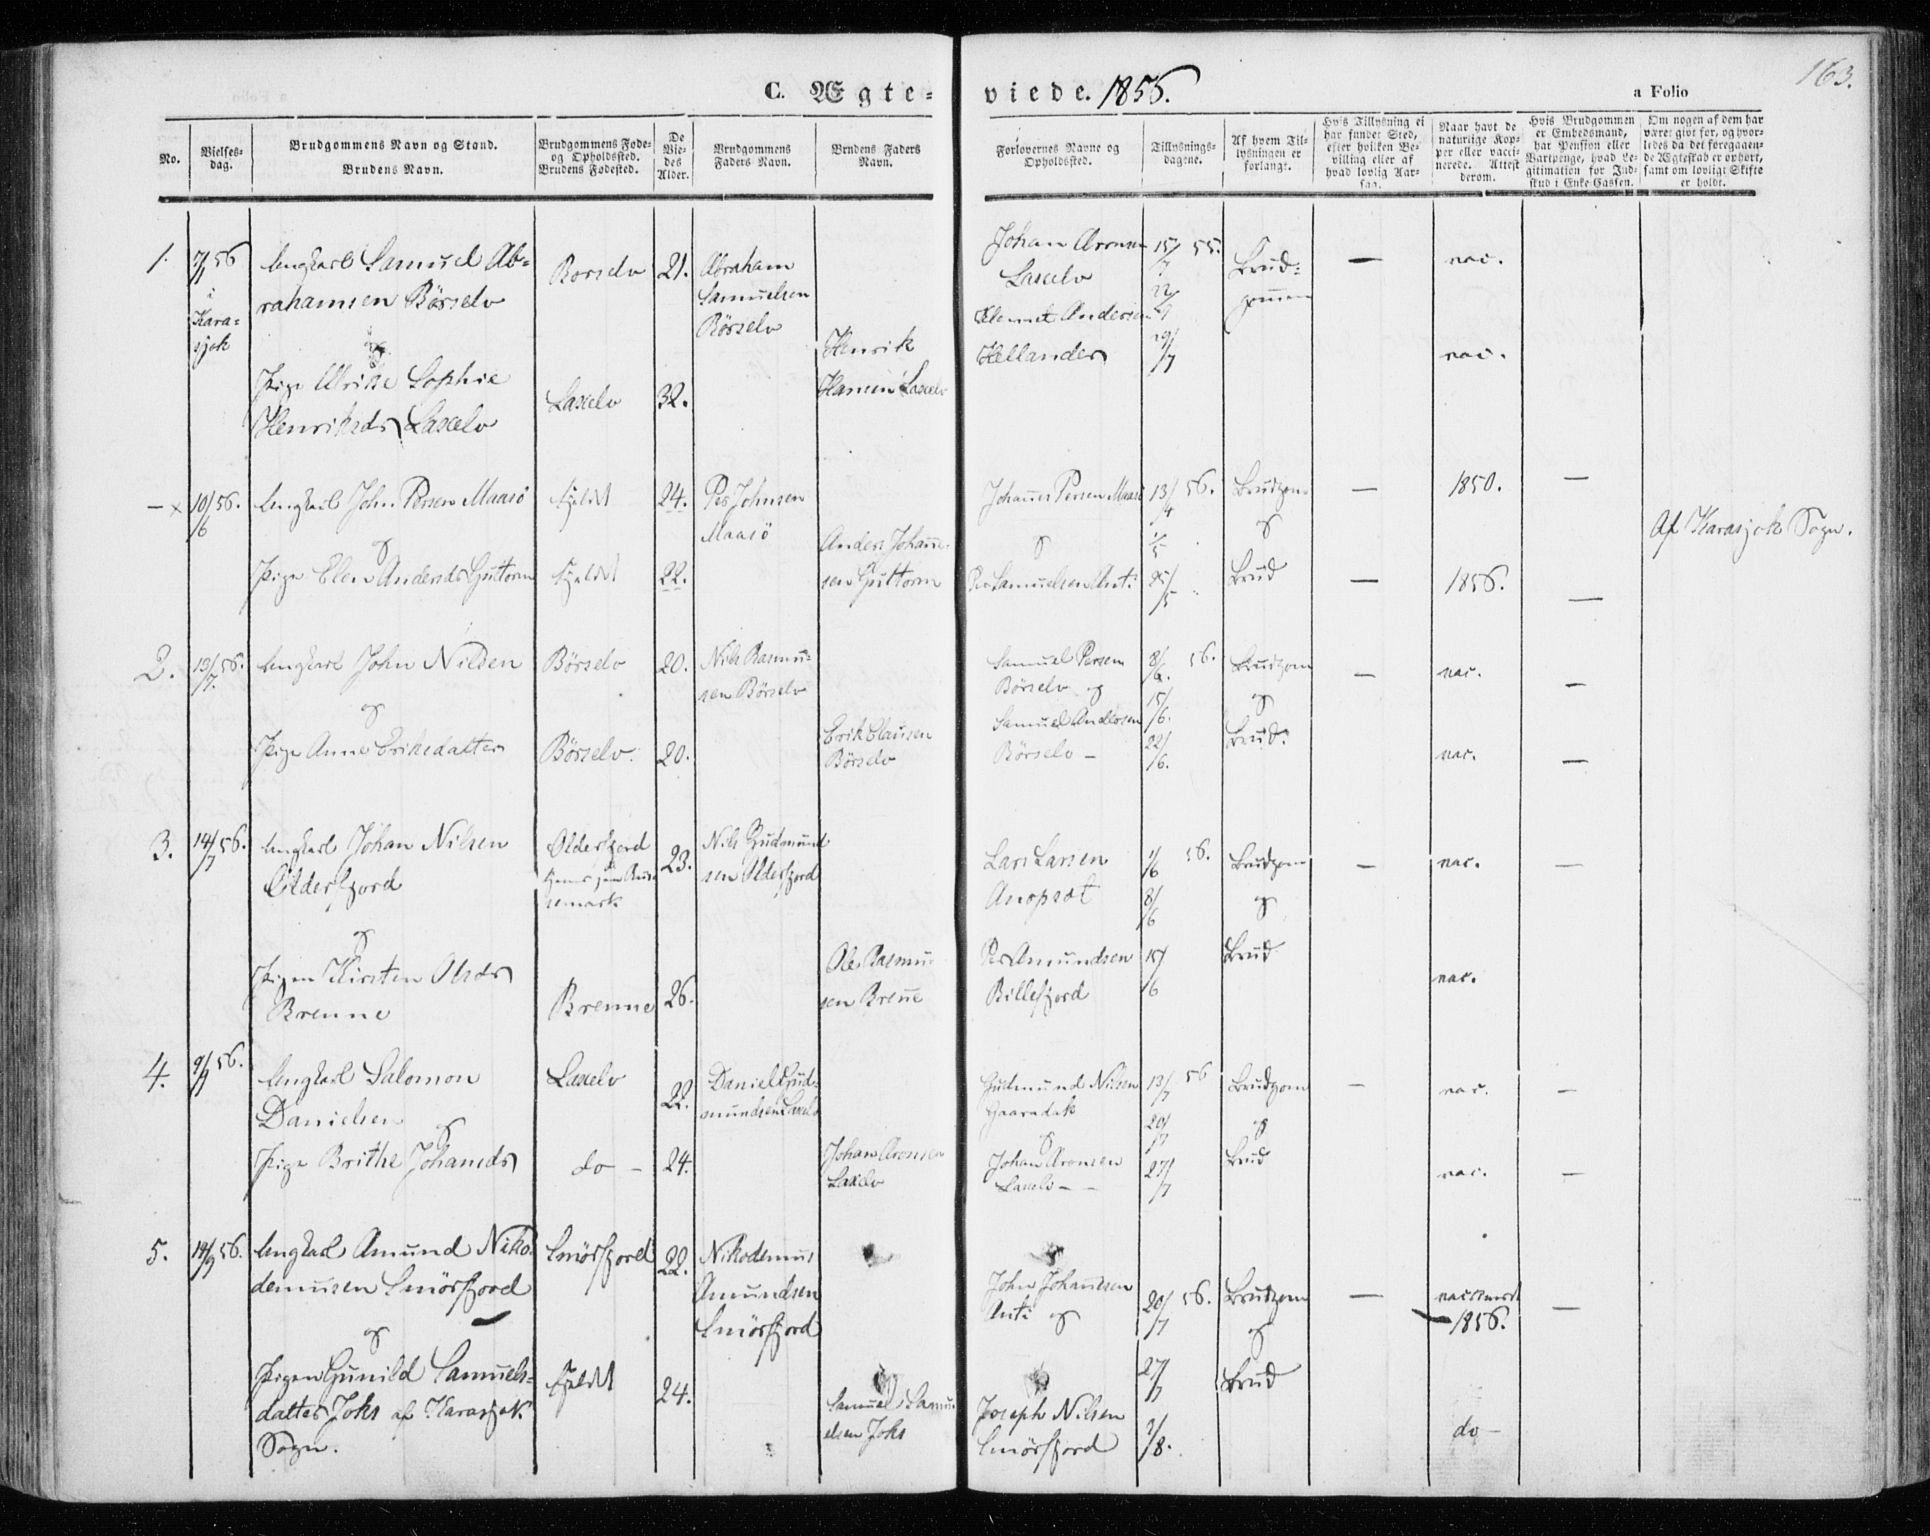 163.
C. Ægte-
viede. 1856.
a Folio
No.
Vielses-
dag.
Brudgommens Navn og Stand.
Brudens Navn.
Brudgommens Føde-
og Opholdssted.
Brudens Fødested.
De
Vie-
des
Alder.
Brudgommens
Faders Navn.
Brudens Faders
Navn.
Forlovernes Navne og
Opholdssted.
Tillysnings-
dagene.
Af hvem Til-
lysningen er
forlangt.
Hvis Tillysning ei
har fundet Sted,
efter hvilken Be-
villing eller af
hvad lovlig Aar-
sag.
Naar havt de
naturlige Kop-
per eller vacci-
nerede. Attest
derom.
Hvis Brudgommen
er Embedsmand,
har Pension eller
Vartpenge, hvad Le-
gitimation for Ind-
skud i Enke-Cassen.
Om nogen af dem har
været gift før, og hvor-
ledes da det foregaaen-
de Ægteskab er ophørt,
samt om lovligt Skifte
er holdt.
1.
7/1 56
i
Kara-
sjok
Ungkarl Samuel Ab-
rahamsen Börselv
og
Pige Ulrike Sophie
Henriksdr Laxelv
Borselv
Laxelv
21.
32.
Abraham
Samuelsen
Börselv
Henrik
Hansen Laxelv
Johan Aronsen
Laxelv
Klemet Andersen
Hellander
15/7 55.
22/7
29/7
Brud-
gommen
—
vac.
vac.
— x
10/6 56.
Ungkarl John Persen Maasö
og
Pige Elen Andersdr Guttorm
Fjeldet
Fjeldet
24.
22.
Per Johnsen
Maasö
Anders Johanne-
sen Guttorm
Johannes Persen Maasö
og
Per Samuelsen Anti
13/4 56.
1/5
/5
Brudgom
og
Brud
—
—
1850.
1856.
—
—
Af Karasjok Sogn.
2.
13/7 56.
Ungkarl John Nilsen
og
Pige Anne Eriksdatter
Börselv
Börselv.
20.
20.
Nils Rasmu-
sen Börselv
Erik Clausen
Börselv
Samuel Persen
Börselv og
Samuel Andersen
Börselv —
8/6. 56.
15/6.
22/6.
Brudgom
og
Brud.
—
vac.
vac.
—
—
3.
14/7 56.
Ungkarl Johan Nilsen
Olderfjord
og
Pigen Kirsten Olsdr
Brenne
Olderfjord
Brenne
23.
26.
Nils Gudmund
sen Olderfjord
Ole Rasmu-
sen Brenne
Lars Larsen
Anopset
Per Amundsen
Billefjord
1/6 56.
8/6
15/6
Brudgom
og
Brud
—
vac.
vac.
—
4.
9/9 56.
Ungkarl Salomon
Danielsen
og
Pige Brithe Johansdr
Laxelv
do —
22.
24.
Daniel Gud-
mundsen Laxelv
Johan Aronsen
Laxelv
Gudmund Nilsen
Gaaradak
og
Johan Aronsen
Laxelv — —
13/7 56
20/7
27/7
Brudgom
og
Brud
—
vac.
vac.
—
—
5.
14/9 56.
Ungkarl Amund Niko-
demusen Smörfjord
og
Pigen Gunild Samuels-
datter Joks af Karasjok
Sogn.
Smörfjord
Fjeldet
22.
24.
Nikodemus
Amundsen
Smörfjord
Samuel Samu-
elsen Joks
John Johannesen
Anti og
Joseph Nilsen
Smörfjord
20/7 56.
27/7
3/8.
Brudgom
og
Brud
—
1856.
do —
—